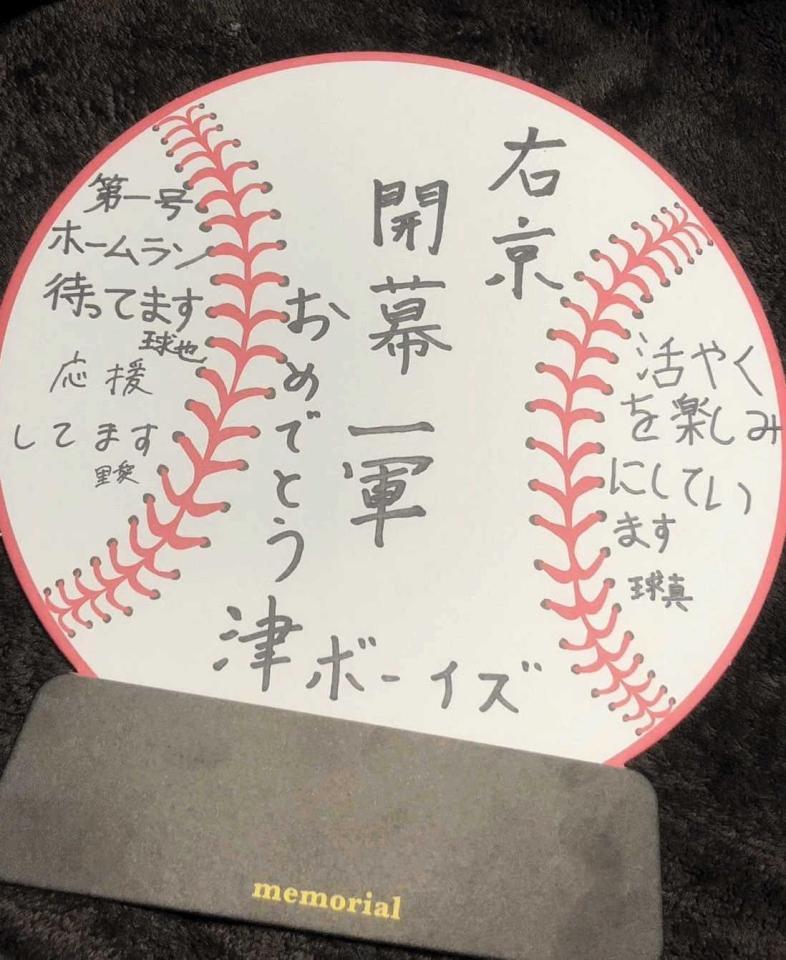 右京
開幕一軍
おめでとう
津ボーイズ
第一号
ホームラン
待ってます
球也
応援
してます
里奈
活やく
を楽しみ
にしてい
ます
球真
memorial